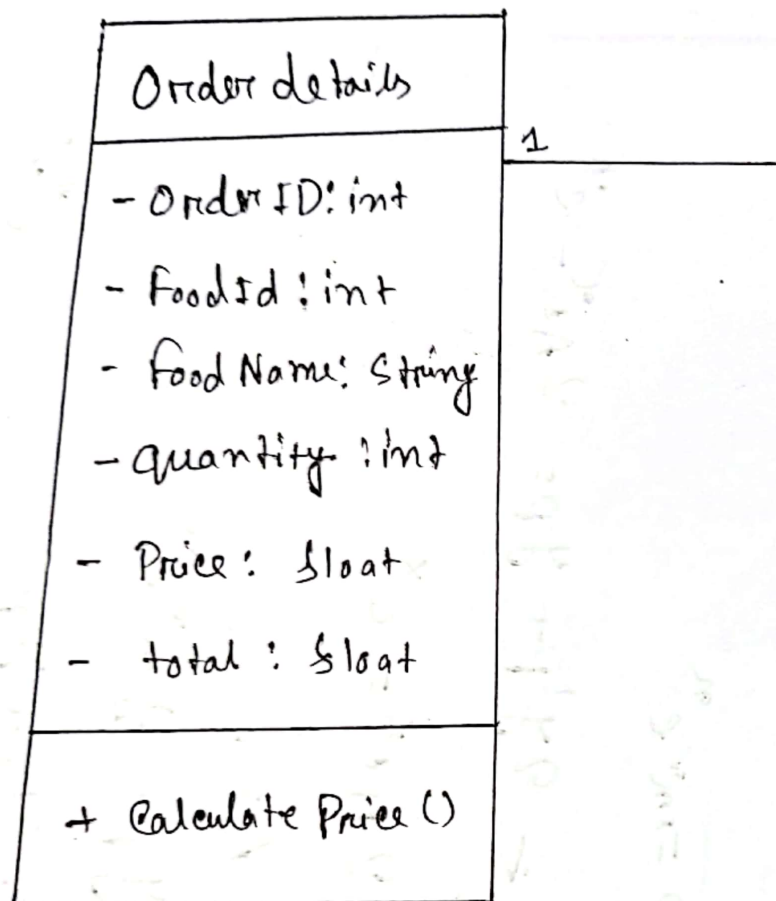 Order details
1
- Order ID: int
- FoodId : int
- Food Name: String
- quantity : int
- Price: float
- total : float
+ Calculate Price ()